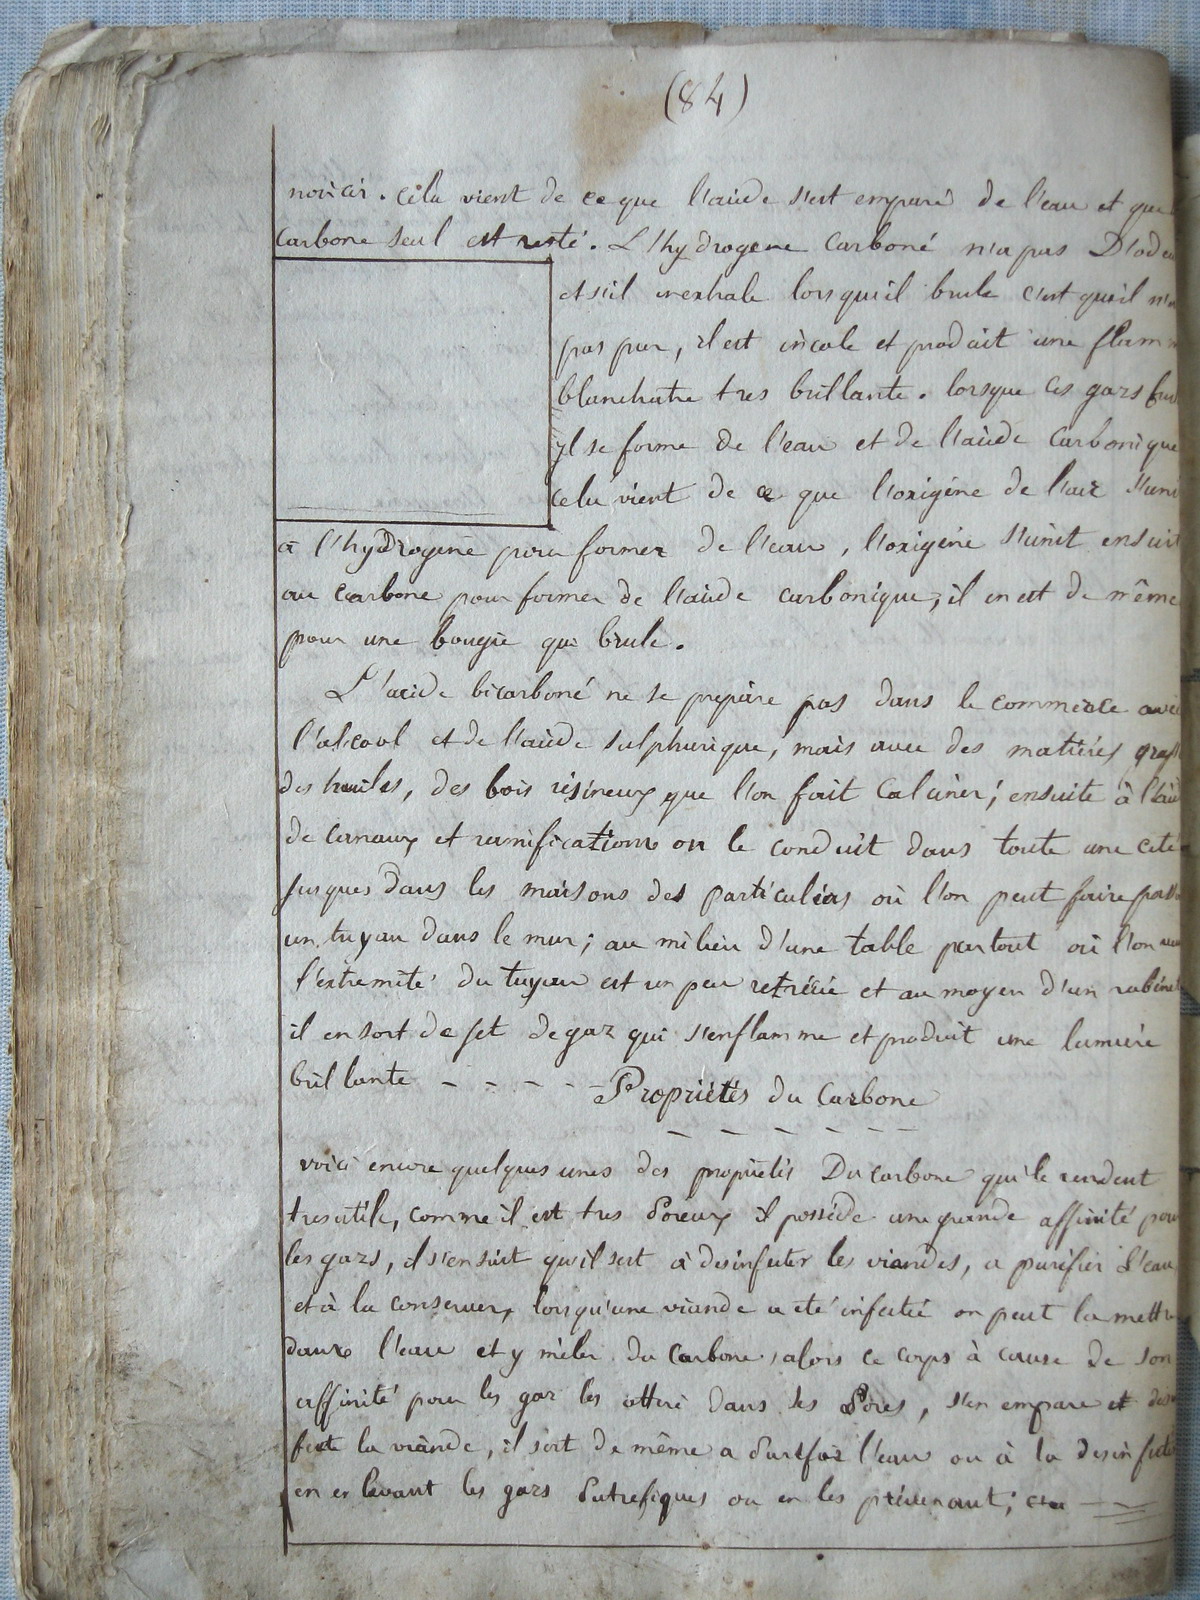 (84)
noircir. cela vient de ce que l'acide s'est emparé de l'eau et que
Carbone seul est resté. L'hydrogene Carboné n'a pas D'odeu
et s'il en exhale lorsqu'il brule c'est qu'il n'e
pas pur, il est incole et produit une flamm
blanchatre tres brillante. lorsque ces gazs bru
yl se forme de l'eau et de l'acide Carbonique
cela vient de ce que l'oxigène de l'air s'uni
a l'hydrogène pour former de l'eau, l'oxigène s'unit ensuit
au carbone pour former de l'acide carbonique; il en est de même
pour une bougie qui brule.
L'acide bicarboné ne se prépare pas dans le commerce avec
l'alcool et de l'acide sulphurique, mais avec des matières grass
des huiles, des bois résineux que l'on fait Calciner; ensuite à l'aid
de canaux et ramifications on le conduit dans toute une cité
jusques dans les maisons des particuliers où l'on peut faire pass
un tuyau dans le mur; au milieu d'une table partout où l'on
l'extremité du tuyau est un peu retrécie et au moyen d'un robinet
il en sort de jet de gaz qui s'enflamme et produit une lumière
brillante - - - - - Propriétés du Carbone
voici encore quelques unes des propriétés Du carbone qui le rendent
tres utile, comme il est tres Poreux il possède une grande affinité pour
les gazs, il s'ensuit qu'il sert à desinfecter les viandes, a purifier L'eau
et à la conserver, lorsqu'une viande a été infectée on peut la mettre
dans l'eau et y mêler du Carbone, alors ce corps à cause de son
affinité pour les gaz les attire dans ses Pores, s'en empare et desin
fecte la viande, il sert de même a Purifier l'eau ou à la desinfecter
en enlevant les gazs Putrefiques ou en les prévenant;